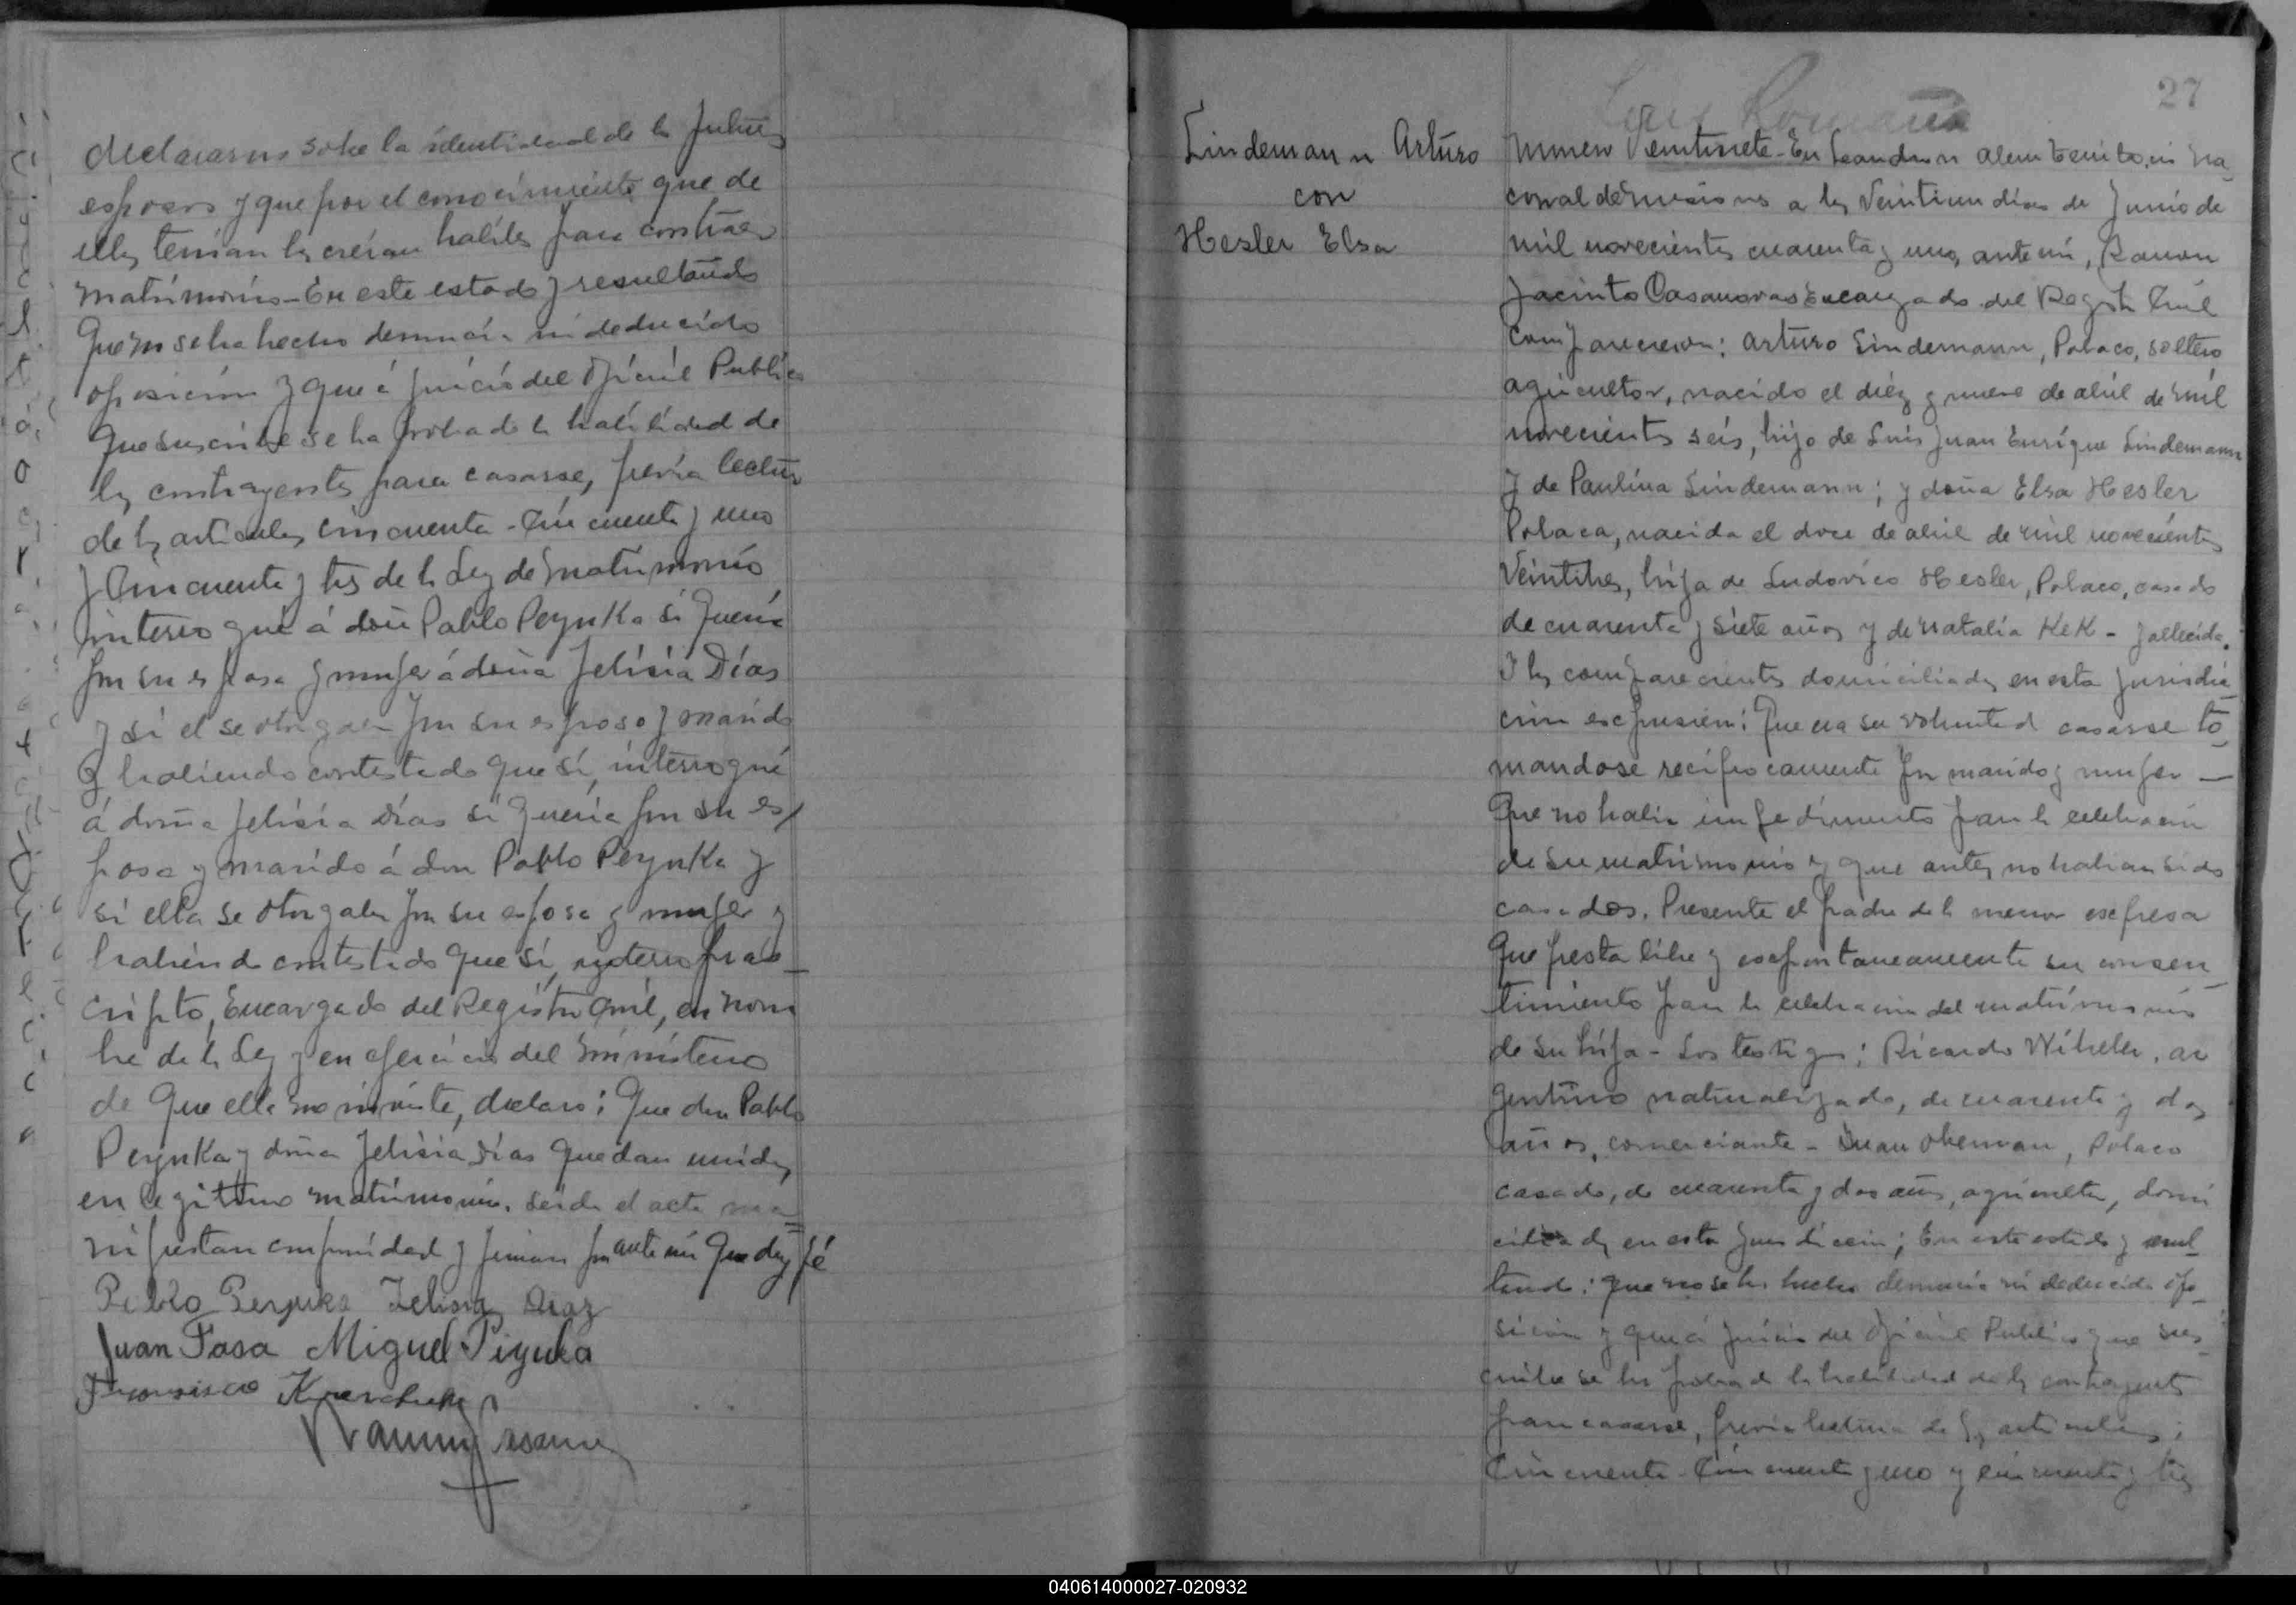 declararon sobre la identidad de los futuros
esposos y que por el conocimiento que de
ellos tenian los creian habiles para contraer
matrimonio - En este estado y resultando
Que no se ha hecho denuncia ni deducido
oposicion y que á juicio del Oficial Publico
que suscribe se ha probado la habilidad de
los contrayentes para casarse, previa lectura
de los articulos cincuenta - Cincuenta y uno
y Cincuenta y tres de la Ley de Matrimonio
interrogué á don Pablo Peynka si Queria
por su esposa y mujer á doña Felisia Días
y si el se otorgaba por su esposo y marido
y habiendo contestado que sí, interrogué
á doña Felisia Días si Queria por su es/
poso y marido á don Pablo Peynka y
si ella se otorgaba por su esposa y mujer y
habiendo contestado que sí,
cripto, Encargado del Registro Civil, en nom
bre de la Ley y en ejercicio del Ministerio
de Que ella me inviste, declaro: Que don Pablo
Peynka y doña Felisia Días quedan unidos
en legitimo matrimonio. Leida el acta ma-
nifiestan conformidad y firman por ante mi Que doy fé
Pablo Peynka Felisia Diaz
Juan Pasa Miguel Piynka
Francisco
27
Lindemann Arturo
con
Hesler Elsa
Luis Romaña
Numero Veintisiete - En Leandro n Alem Territorio Na-
cional de Misiones a los Veintiun dias de Junio de
mil novecientos cuarenta y uno, ante mi, Ramon
Jacinto Casanovas Encargado del Registro Civil
Comparecieron: Arturo Lindemann, Polaco, soltero
agricultor, nacido el diez y nueve de abril de mil
novecientos seis, hijo de Luis Juan Enrique Lindemann
y de Paulina Lindemann; y doña Elsa Hesler
Polaca, nacida el doce de abril de mil novecientos
Veintitres, hija de Ludovico Hesler, Polaco, casado
de cuarenta y siete años y de Natalia KeK - fallecida.
Y los comparecientes domiciliados en esta jurisdic-
cion expusieron: Que era su voluntad casarse to-
mandose recíprocamente por marido y mujer -
Que no habia impedimento para la celebracion
de su matrimonio y que antes no habian sido
casados. Presente el padre de la menor expresa
Que presta libre y espontaneamente su consen-
timiento para la celebracion del matrimonio
de su hija - Los testigos: Ricardo Wiheler, ar
gentino naturalizado, de cuarenta y dos
años, comerciante - Juan Okerman, Polaco
casado, de cuarenta y dos años, agricultor, domi
ciliados en esta jurisdiccion; En este estado y resul-
tando: Que no se ha hecho denuncia ni deducido opo-
sicion y que á juicio del Oficial Publico que sus-
cribe se ha probado la habilidad de los contrayentes
para casarse, previa lectura de los articulos:
Cincuenta - Cincuenta y uno y cincuenta y tres
040614000027-020932